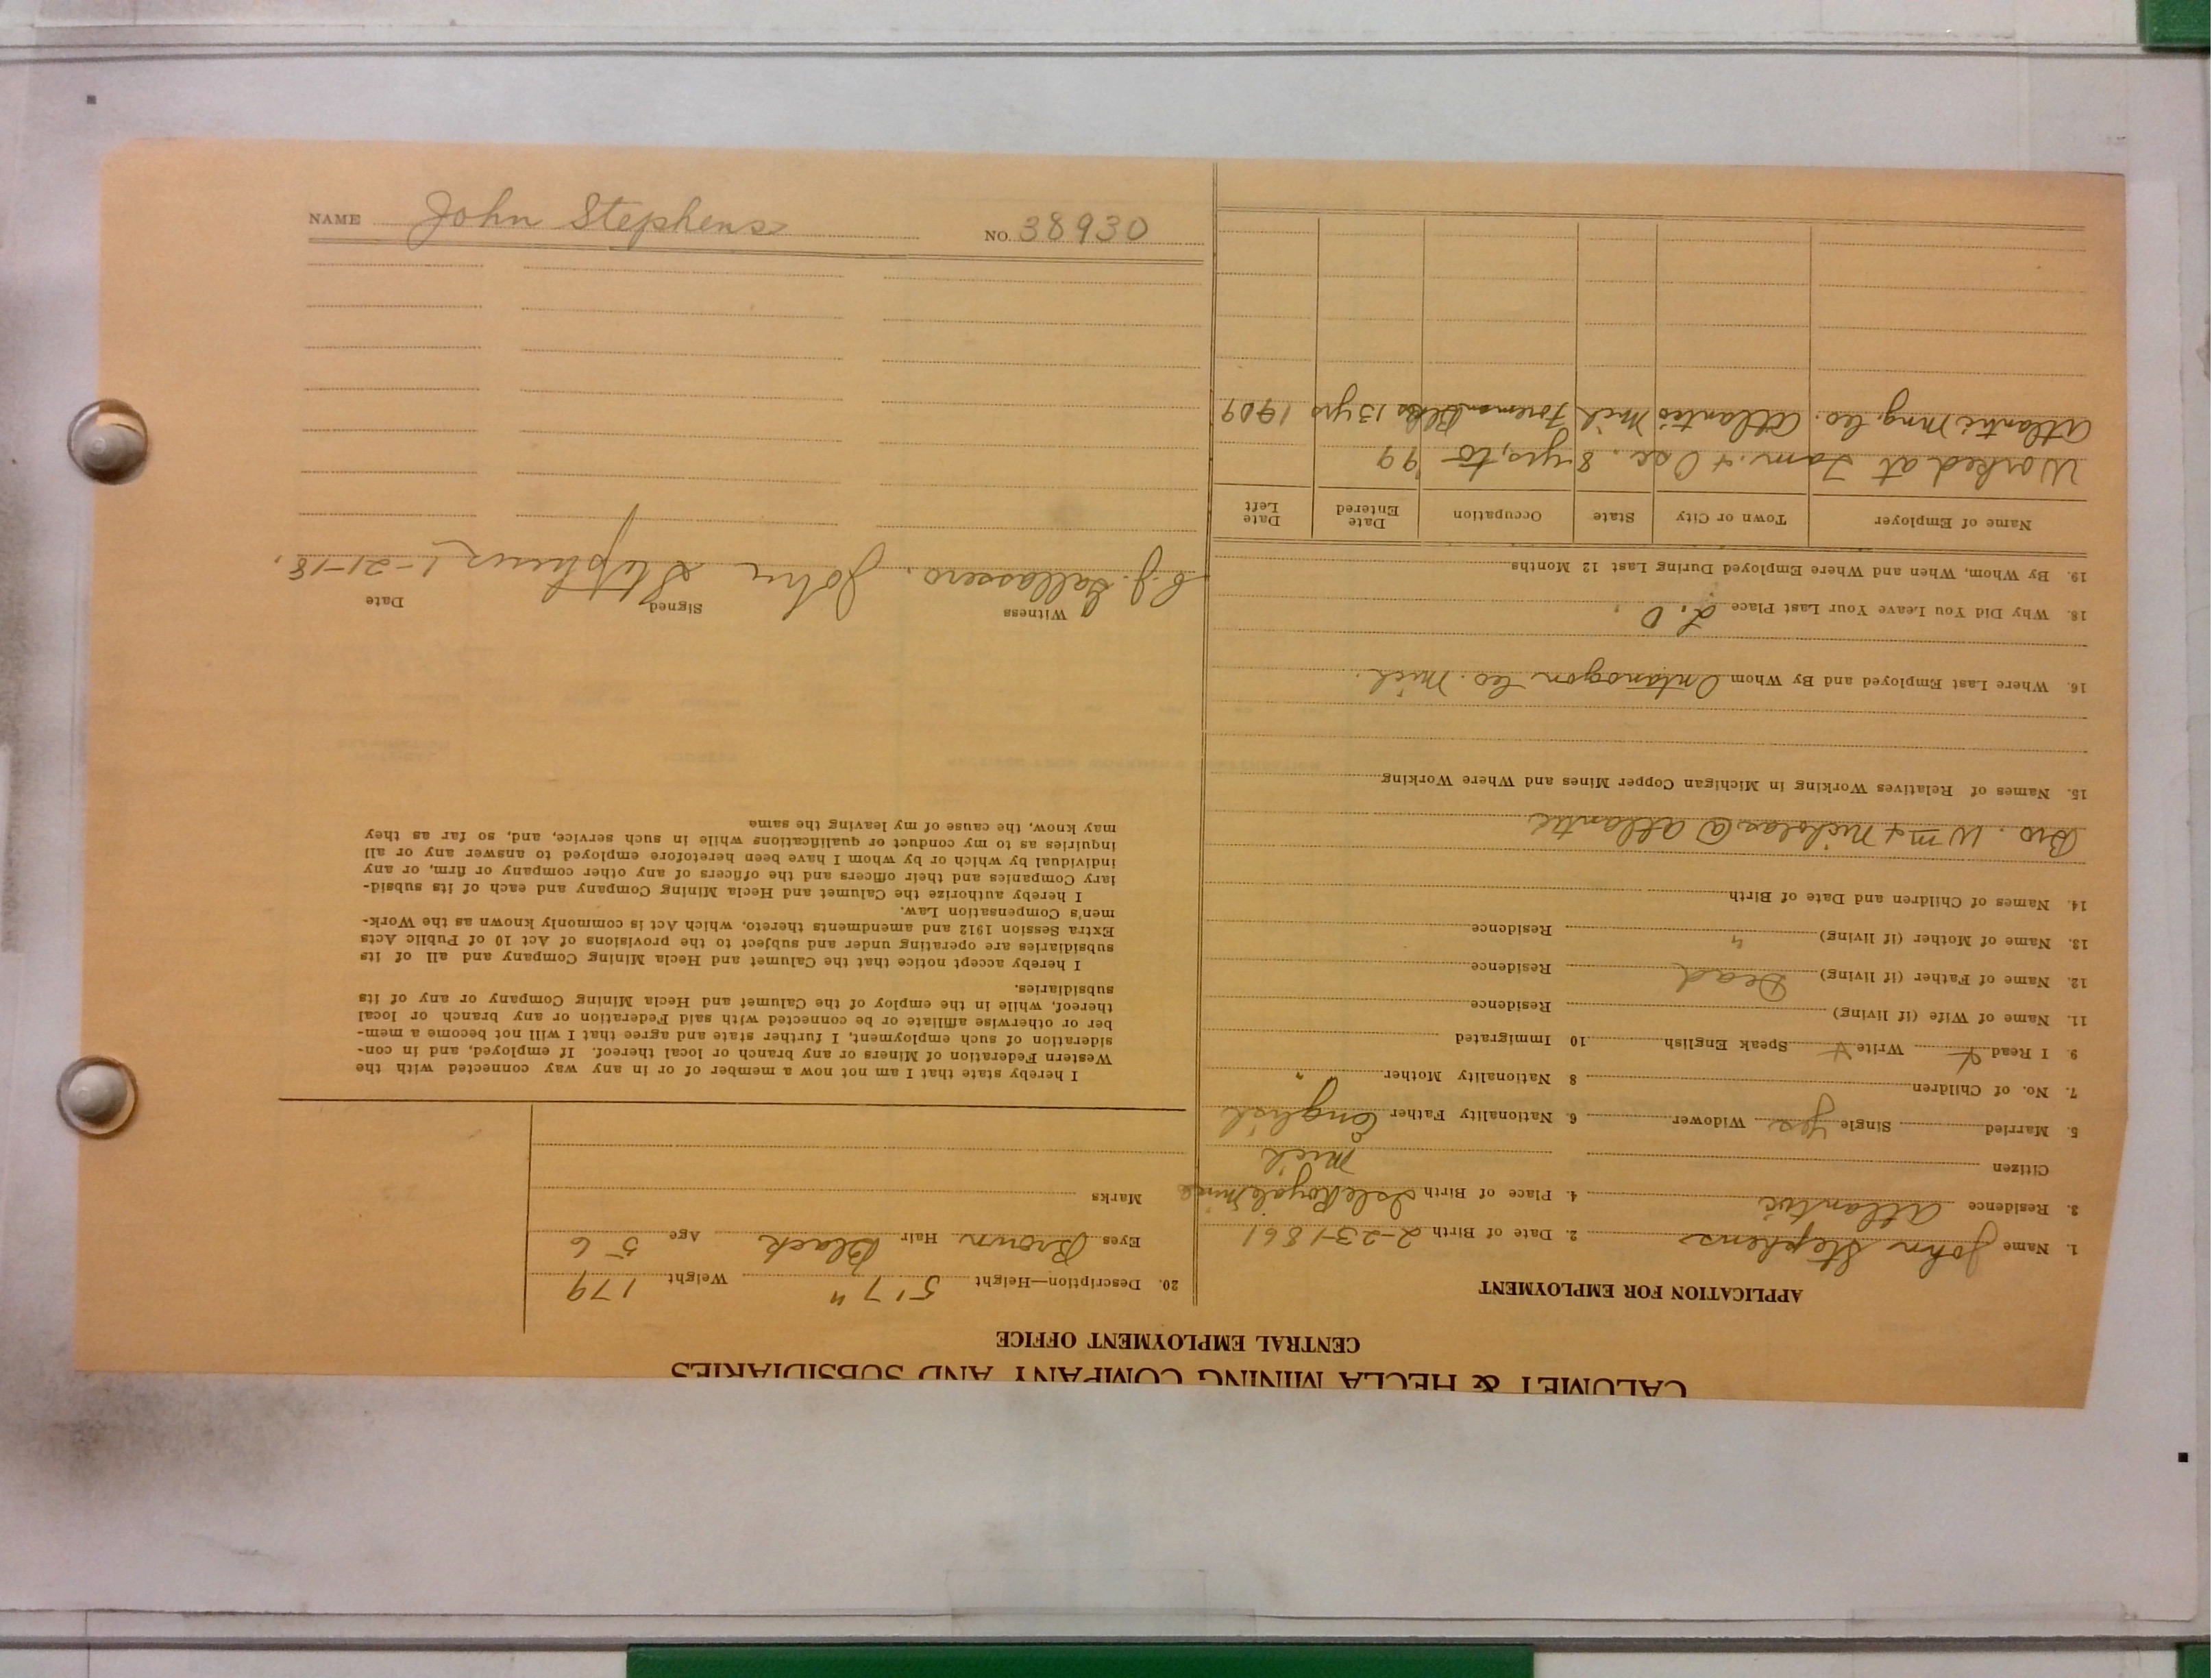 NAME John Stephens NO. 38930
CALUMET & HECLA MINING COMPANY AND SUBSIDIARIES
CENTRAL EMPLOYMENT OFFICE
APPLICATION FOR EMPLOYMENT
1. Name John Stephens 2. Date of Birth 2-23-1861
3. Residence Atlantic 4. Place of Birth Isle Royale Mine
Citizen Mich
5. Married Single Yes Widower 6. Nationality Father English
7. No. of Children 8 Nationality Mother "
9. I Read Write Speak English 10 Immigrated
11. Name of Wife (if living) Residence
12. Name of Father (if living) Dead Residence
13. Name of Mother (if living) " Residence
14. Names of Children and Date of Birth
Bro. Wm & Nicholas @ Atlantic
15. Names of Relatives Working in Michigan Copper Mines and Where Working
16. Where Last Employed and By Whom Ontonogon Co. Mich.
18. Why Did You Leave Your Last Place
19. By Whom, When and Where Employed During Last 12 Months
Name of Employer Town or City State Occupation Date Entered Date Left
Worked at Tam. & Osc. 8 yrs, to 99
Atlantic Mng. Co. Atlantic Mich Foreman 13 yrs 1909
20. Description—Height 5'7" Weight 179
Eyes Brown Hair Black Age 56
Marks
I hereby state that I am not now a member of or in any way connected with the
Western Federation of Miners or any branch or local thereof. If employed, and in con-
sideration of such employment, I further state and agree that I will not become a mem-
ber or otherwise affiliate or be connected with said Federation or any branch or local
thereof, while in the employ of the Calumet and Hecla Mining Company or any of its
subsidiaries.
I hereby accept notice that the Calumet and Hecla Mining Company and all of its
subsidiaries are operating under and subject to the provisions of Act 10 of Public Acts
Extra Session 1912 and amendments thereto, which Act is commonly known as the Work-
men's Compensation Law.
I hereby authorize the Calumet and Hecla Mining Company and each of its subsid-
iary Companies and their officers and the officers of any other company or firm, or any
individual by which or by whom I have been heretofore employed to answer any or all
inquiries as to my conduct or qualifications while in such service, and, so far as they
may know, the cause of my leaving the same
Witness Signed Date
John Stephens 1-21-18.